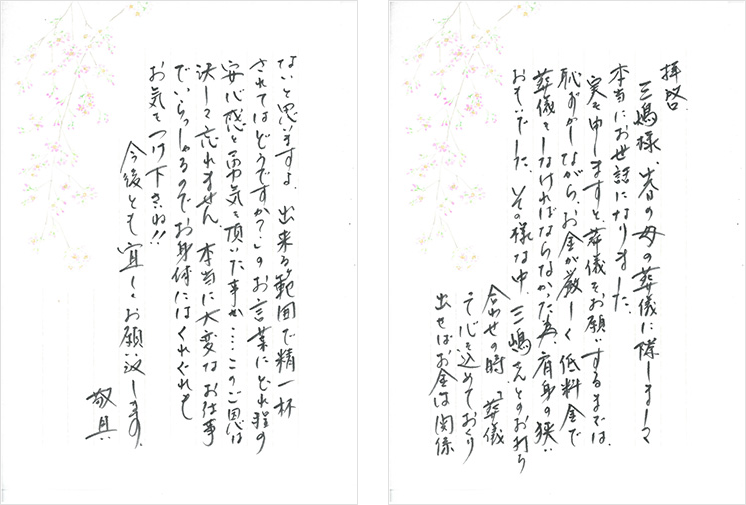 拝啓
三嶋様、昨春の母の葬儀に際しまして
本当にお世話になりました。
実を申しますと、葬儀をお願いするまでは、
恥ずかしながら、お金が厳しく低料金で
葬儀をしなければならなかった為、肩身の狭い
おもいでした。その様な中、三嶋さんとのお打ち
合わせの時、「葬儀
って心を込めておくり
出せばお金は関係
ないと思いますよ。出来る範囲で精一杯
されてはどうですか?」のお言葉にどれ程の
安心感と勇気を頂いた事か……このご恩は
決して忘れません。本当に大変なお仕事
でいらっしゃるのでお身体にはくれぐれも
お気をつけ下さいね!!
今後とも宜しくお願い致します。
敬具